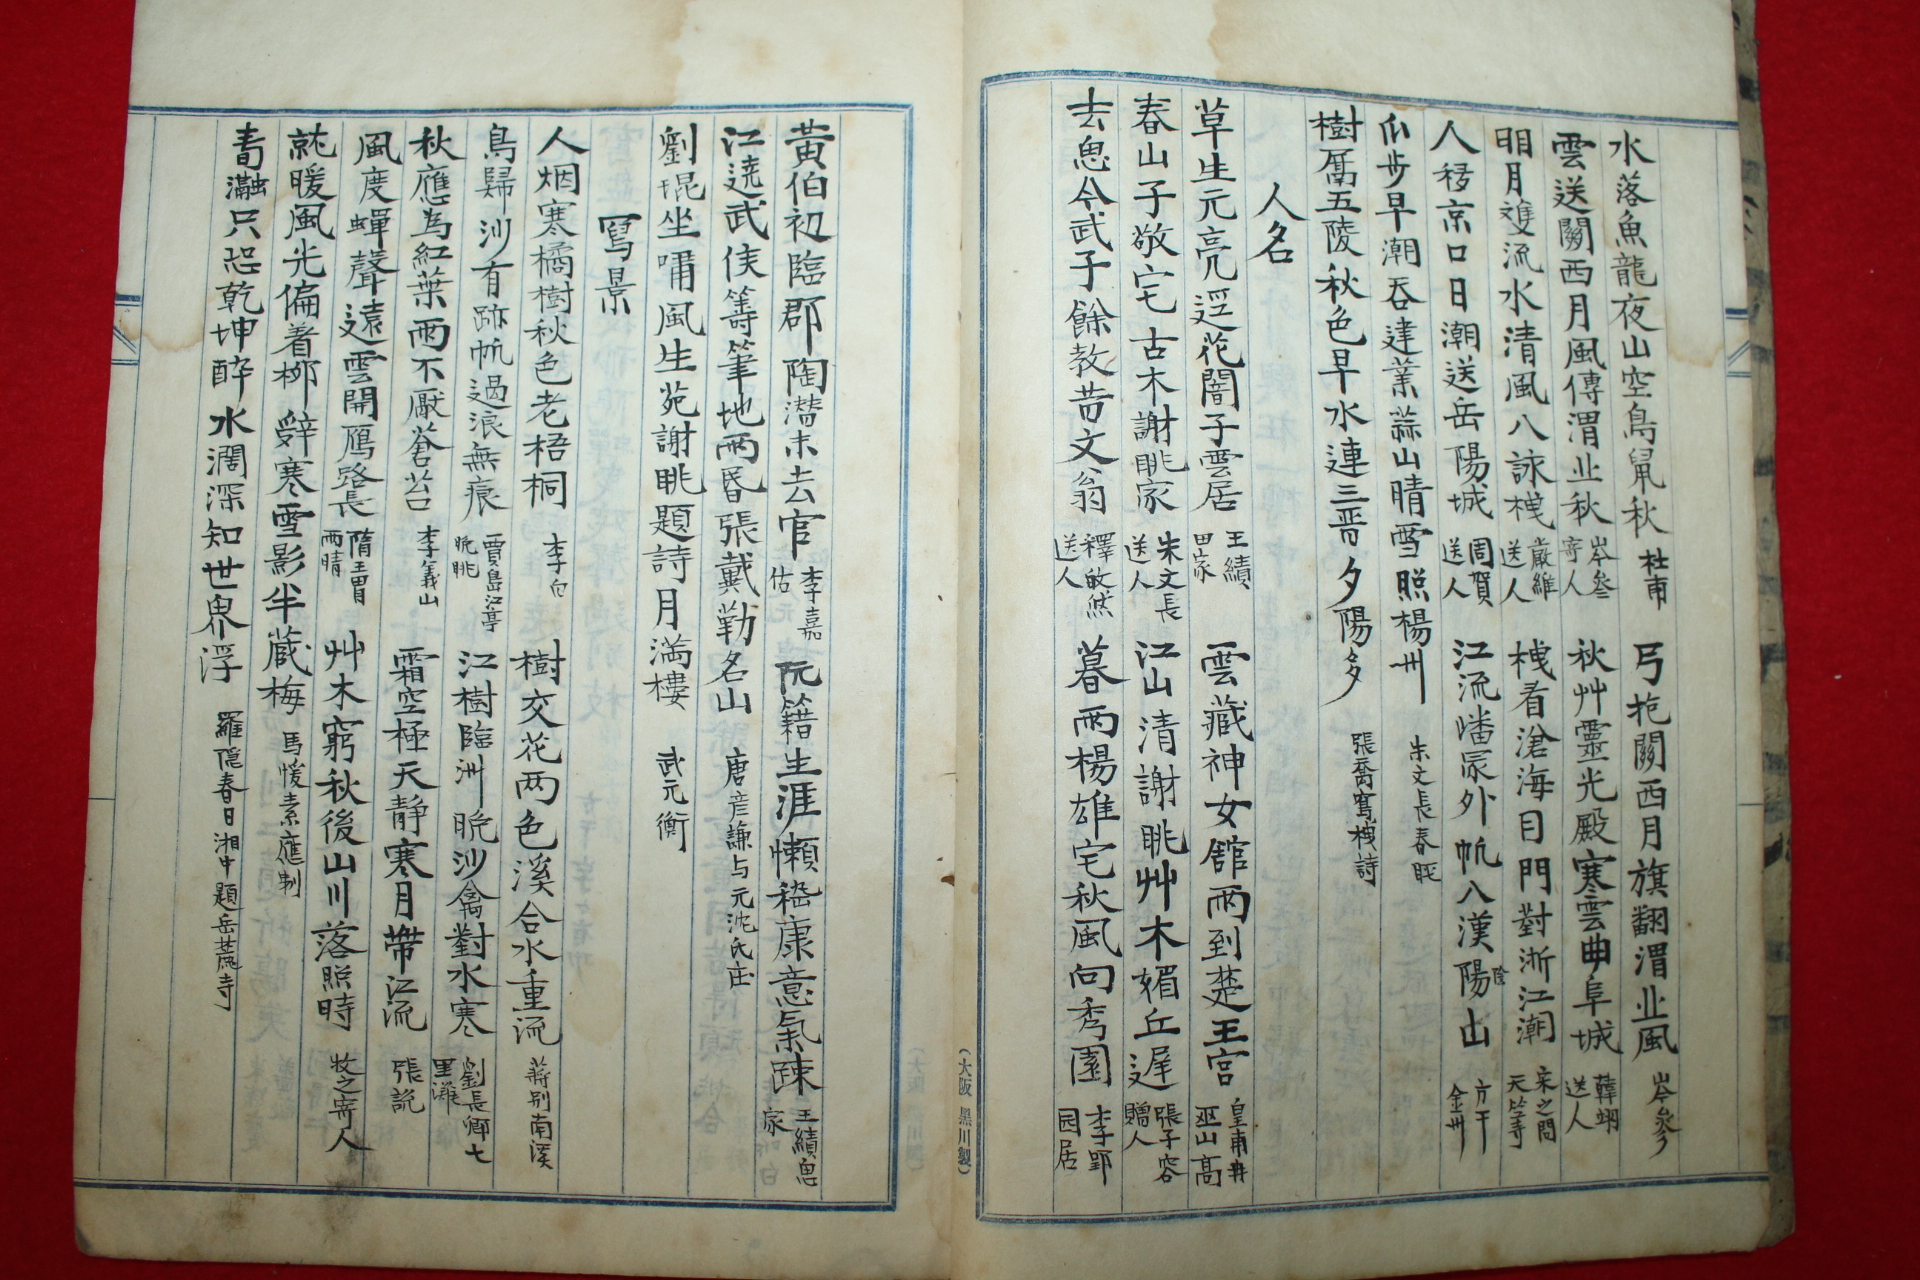 水落魚龍夜山空鳥鼠秋 杜甫 弓抱關西月旗翻渭北風 岑參
雲送關西月風傳渭北秋 岑參寄人 秋艸靈光殿寒雲曲阜城 韓翃送人
明月雙流水清風八詠樓 嚴維送人 樓看滄海日門對浙江潮 宋之問天竺寺
人移京口日潮送岳陽城 周賀送人 江流幡冢外帆入漢陽山 陰 方干金州
瓜步早潮吞建業蒜山晴雪照楊州 朱文長春眺
樹屬五陵秋色早水連三晋夕陽多 張喬寫樓詩
人名
草生元亮逕花闇子雲居 王績田家 雲藏神女舘雨到楚王宮 皇甫冉巫山高
春山子敬宅古木謝眺家 朱文長送人 江山清謝眺艸木媚丘遲 張子容贈人
去思今武子餘教昔文翁 釋皎然送人 暮雨楊雄宅秋風向秀園 李郢园居
黃伯初臨郡陶潜未去官 李嘉佑 阮籍生涯懶嵇康意氣疎 王績思家
江遶武侯籌筆地雨昏張戴勒名山 唐彦謙与元沈氏庄
劉琨坐嘯風生苑謝眺題詩月滿樓 武元衡
寫景
人烟寒橘樹秋色老梧桐 李白 樹交花两色溪合水重流 蔣別南溪
鳥歸沙有跡帆過浪無痕 賈島江亭晩眺 江樹臨洲晩沙禽對水寒 劉長卿七里灘
秋應為紅葉雨不厭蒼苔 李義山 霜空極天静寒月帶江流 張説
風度蟬聲遠雲開鴈路長 隋王胄雨晴 艸木窮秋後山川落照時 牧之寄人
就暖風光偏着柳辭寒雪影半藏梅 馬懷素應制
書瀜只恐乾坤醉水濶深知世界浮 羅隠春日湘中題岳麓寺
(大阪 黒川製)